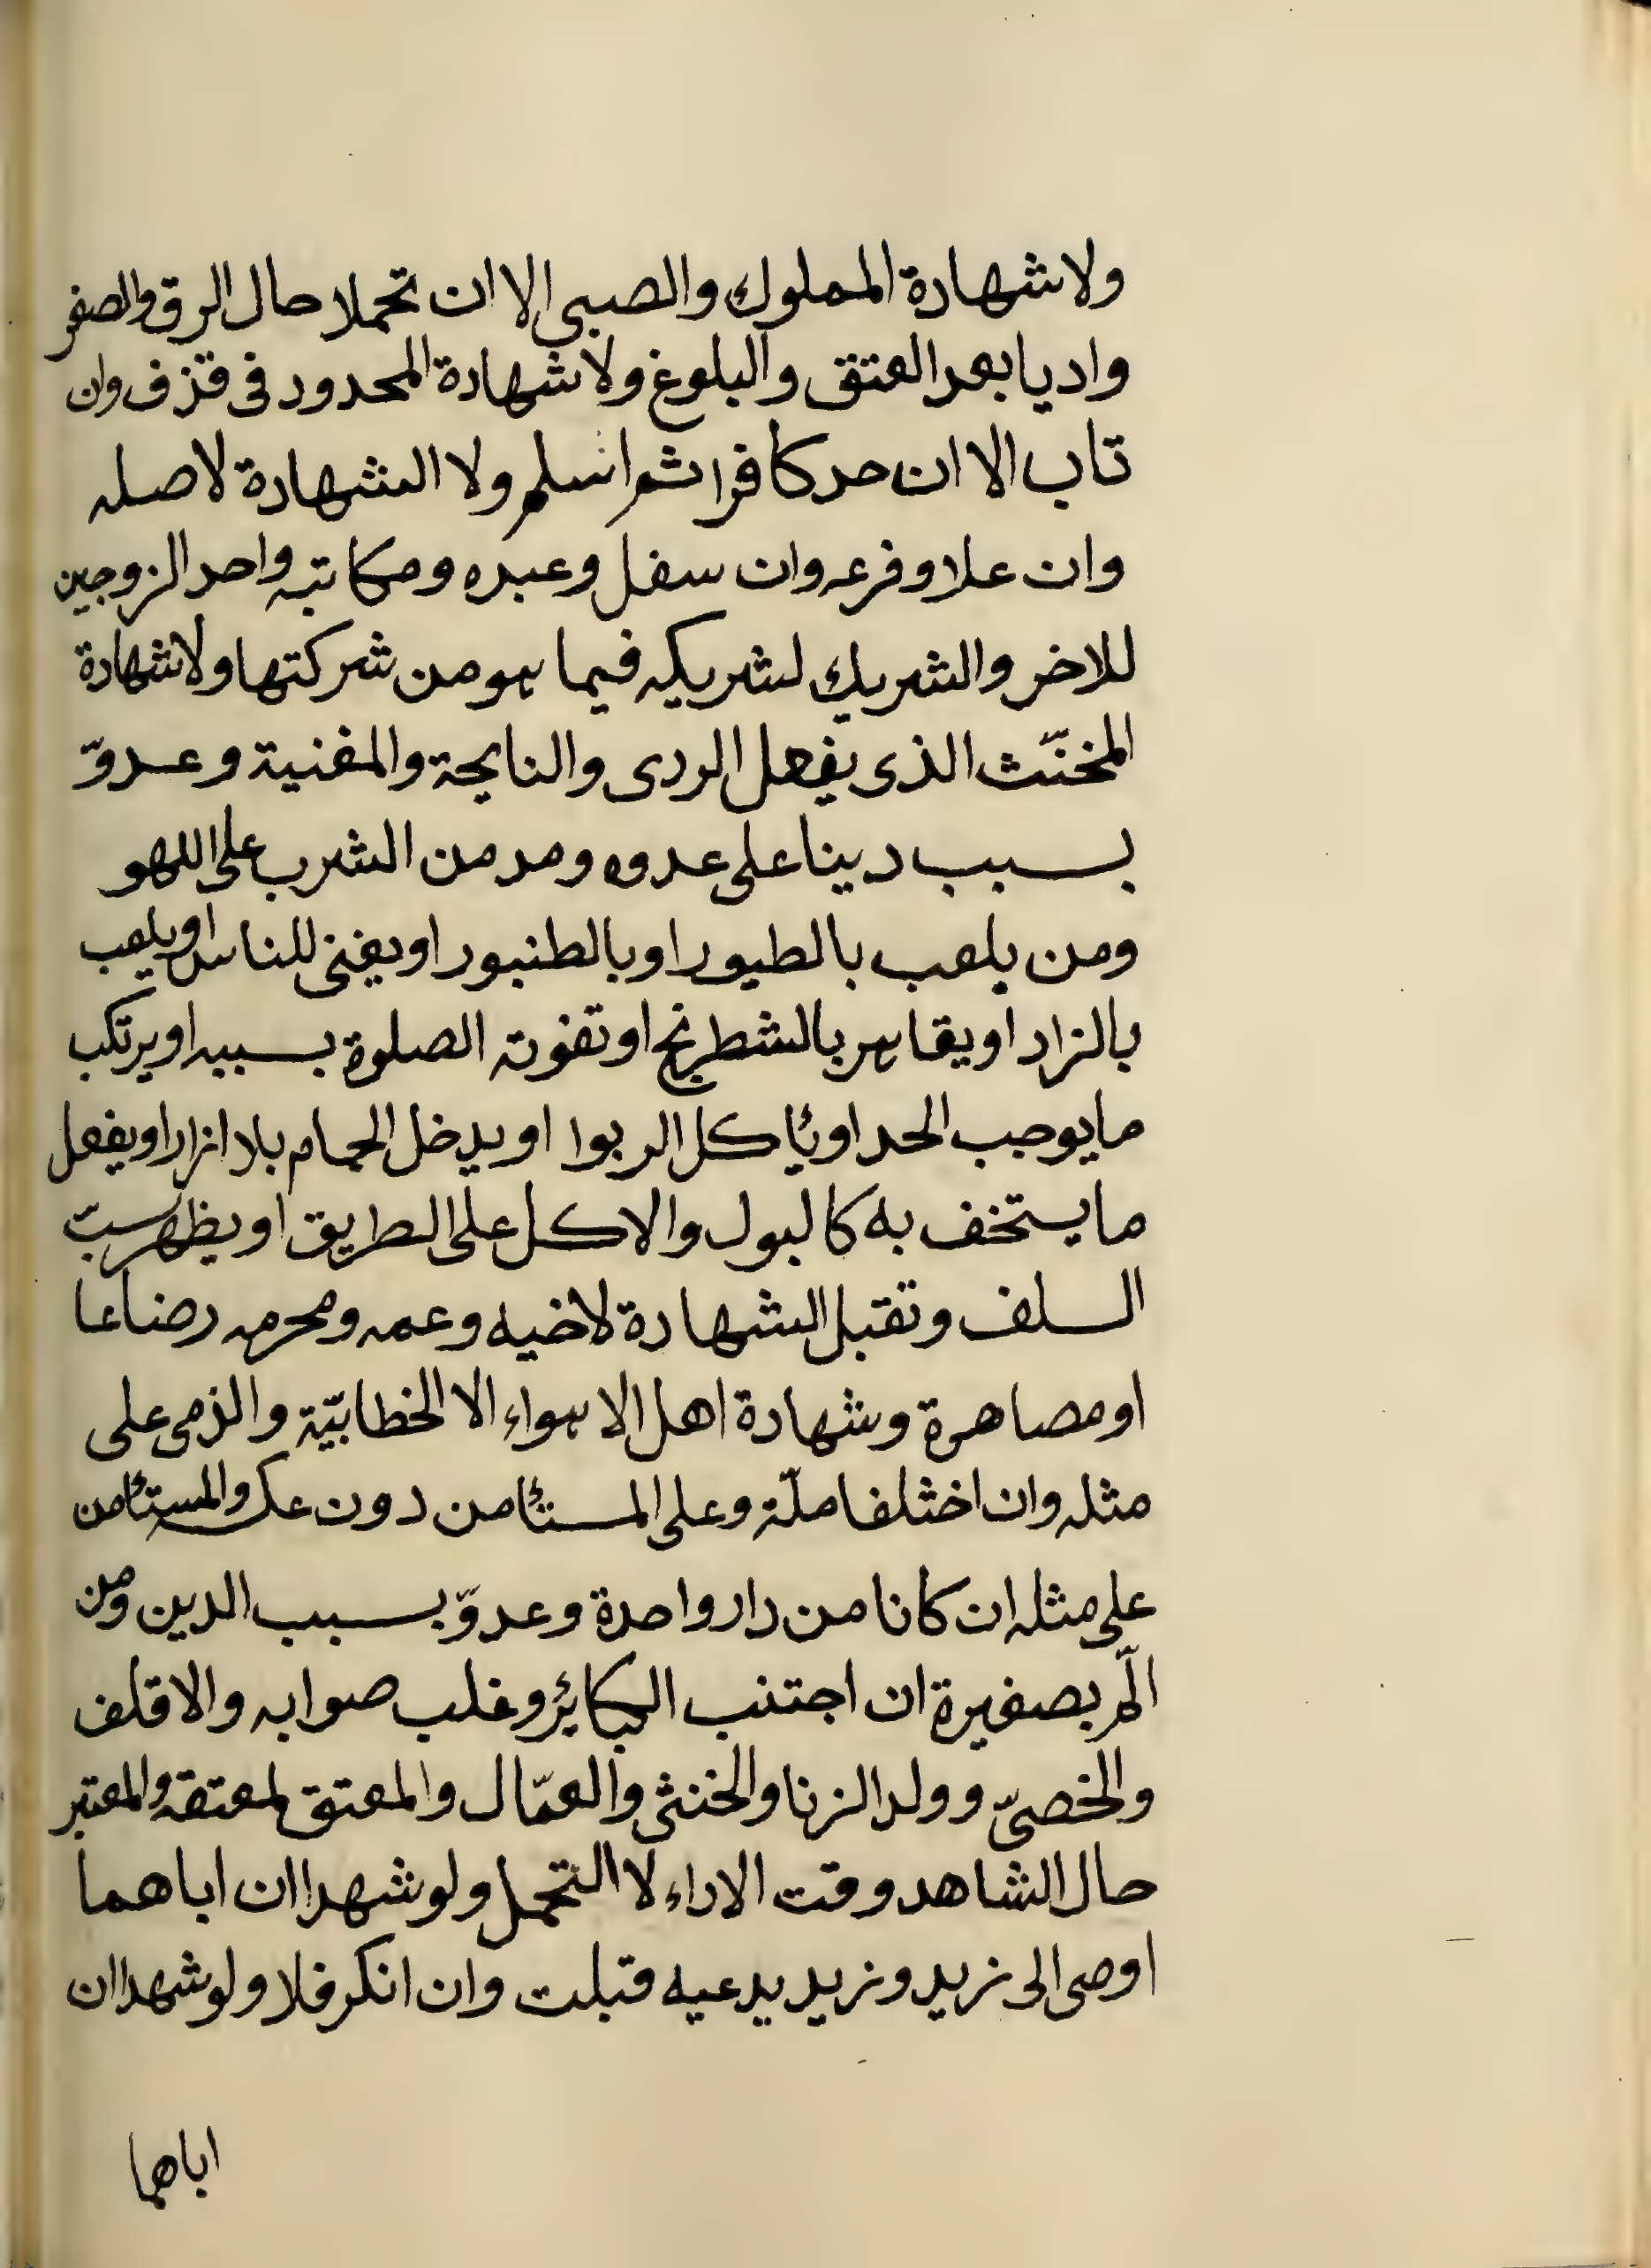 ولا شهادة المملوك والصبى الا ان تحملا حال الرق والصغر
واديا بعد العتق والبلوغ ولا شهادة المحدود فى قذف وان
تاب الا ان حد كافرا ثم اسلم ولا الشهادة لاصله
وان علا وفرعه وان سفل وعبده ومكاتبه واحد الزوجين
للاخر والشريك لشريكه فيما هو من شركتها ولا شهادة
المخنّث الذى يفعل الردى والنايحة والمغنية وعدوّ
بسبب دينا على عدوه ومدمن الشرب على اللهو
ومن يلعب بالطيور او بالطنبور او يغنى للناس او يلعب
بالزاد او يقامر بالشطرنج او تفوته الصلوة بسببه او يرتكب
ما يوجب الحد او يأكل الربوا او يدخل الحمام بلا ازار او يفعل
ما يستخف به كالبول والاكل على الطريق او يظهر سبّ
السلف وتقبل الشهادة لاخيه وعمه ومحرمه رضاعا
او مصاهرة وشهادة اهل الاهواء الا الخطابيّة والذمى على
مثله وان اختلفا ملّة وعلى المستأمن دون عكسه والمستأمن
على مثله ان كانا من دار واحدة وعدوّ بسبب الدين ومن
المّ بصغيرة ان اجتنب الكبائر وغلب صوابه والاقلف
والخصىّ وولد الزنا والخنثى والعمّال والمعتق لمعتقه والمعتبر
حال الشاهد وقت الاداء لا التحمل ولو شهدا ان اباهما
اوصى الى زيد وزيد يدعيه قبلت وان انكر فلا ولو شهدا ان
اباهما